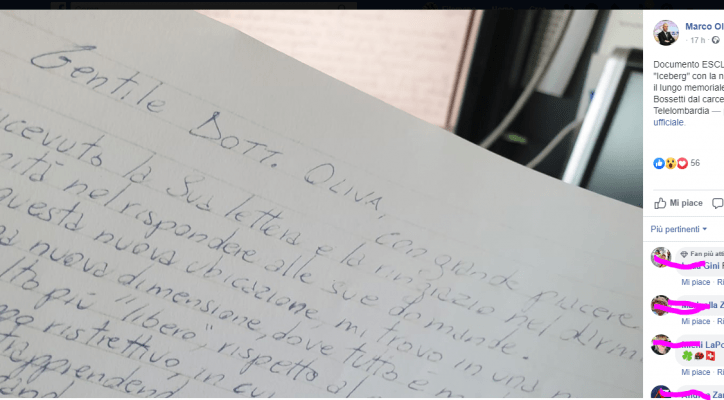 Gentile Dott. Oliva,
ricevuto la Sua lettera e la ringrazio nel darmi
nità nel rispondere alle sue domande.
con grande piacere
questa nuova ubicazione, mi trovo in una n
nuova dimensione, dove tutto e m
lto più "libero", rispetto al
ristrettivo, in cui
apprenden
Marco Ol
17 h
Documento ESCL
"Iceberg" con la n
il lungo memoriale
Bossetti dal carce
Telelombardia —
ufficiale.
56
Mi piace
Più pertinenti
Fan più atti
Gini
Mi piace · Ri
lla Z
Mi piace · Ri
LaPo
Mi piace · Ri
Za